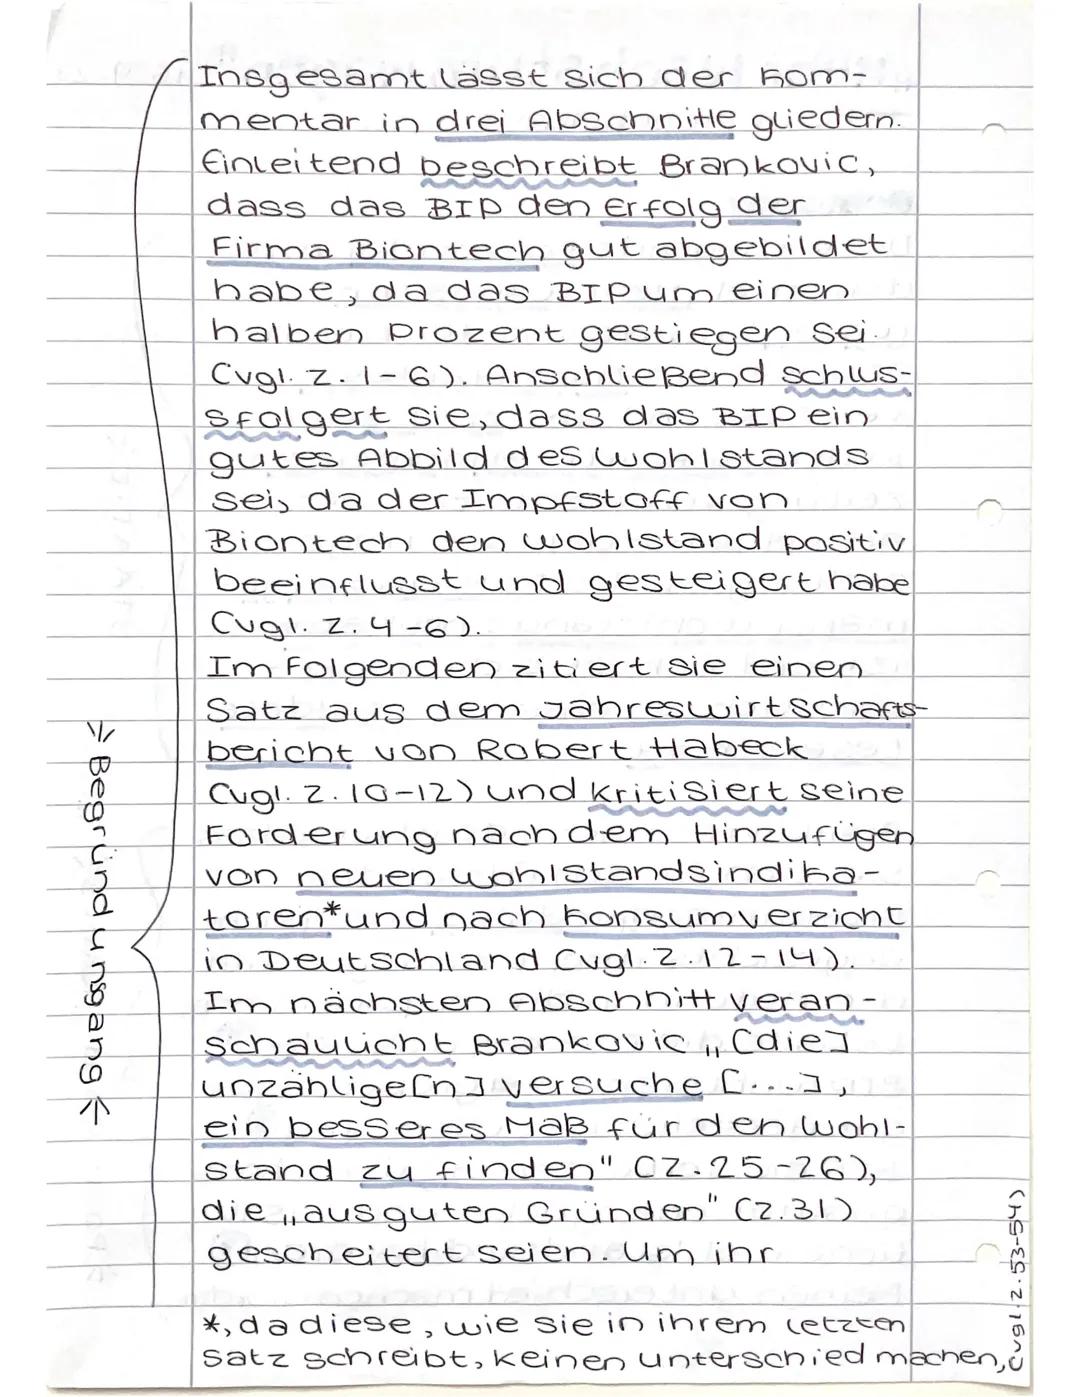 Insgesamt lässt sich der Kom-
mentar in drei Abschnitte gliedern.
Einleitend beschreibt Brankovic,
dass das BIP den Erfolg der
Firma Biontech gut abgebildet
habe, da das BIP um einen
halben Prozent gestiegen sei.
(vgl. Z. 1-6). Anschließend schlus-
sfolgert sie, dass das BIP ein
gutes Abbild des Wohlstands
sei, da der Impfstoff von
Biontech den Wohlstand positiv
beeinflusst und gesteigert habe
(vgl. Z. 4-6).
Im Folgenden zitiert sie einen
Satz aus dem Jahreswirtschafts-
bericht von Robert Habeck
(vgl. Z. 10-12) und kritisiert seine
Forderung nach dem Hinzufügen
von neuen Wohlstandsindika-
toren* und nach Konsumverzicht
in Deutschland (vgl. Z. 12-14).
Im nächsten Abschnitt veran-
schaulicht Brankovic „[die]
unzählige[n] Versuche [...],
ein besseres Maß für den Wohl-
stand zu finden" (Z. 25-26),
die „aus guten Gründen" (Z. 31)
gescheitert seien. Um ihr
*, da diese, wie sie in ihrem letzten
Satz schreibt, keinen Unterschied machen,
(vgl. Z. 53-54)
→ Begründungang ←